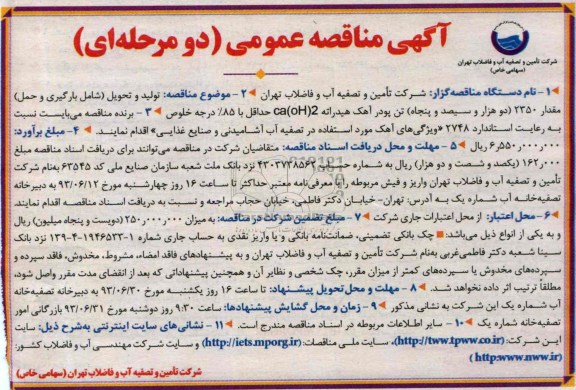 آگهی مناقصه عمومی (دو مرحله‌ای)
شرکت تأمین و تصفیه آب و فاضلاب تهران
(سهامی خاص)
۱- نام دستگاه مناقصه‌گزار: شرکت تأمین و تصفیه آب و فاضلاب تهران ۲- موضوع مناقصه: تولید و تحویل (شامل بارگیری و حمل)
مقدار ۲۳۵۰ (دو هزار و سیصد و پنجاه) تن پودر آهک هیدراته ca(oH)2 حداقل با ۸۵٪ درجه خلوص ۳- برنده مناقصه می‌بایست نسبت
به رعایت استاندارد ۲۷۴۸ «ویژگی‌های آهک مورد استفاده در تصفیه آب آشامیدنی و صنایع غذایی» اقدام نمایند. ۴- مبلغ برآورد:
۶٫۵۵۰٫۰۰۰٫۰۰۰ ریال ۵- مهلت و محل دریافت اسناد مناقصه: متقاضیان شرکت در مناقصه می‌توانند برای دریافت اسناد مناقصه مبلغ
۱۶۲٫۰۰۰ (یکصد و شصت و دو هزار) ریال به شماره نزد بانک ملت شعبه سازمان صنایع ملی کد ۶۳۵۴۵ به‌نام شرکت
تأمین و تصفیه آب و فاضلاب تهران واریز و فیش مربوطه را با معرفی‌نامه معتبر حداکثر تا ساعت ۱۶ روز چهارشنبه مورخ ۹۳/۰۶/۱۲ به دبیرخانه
تصفیه‌خانه آب شماره یک به آدرس: تهران- خیابان دکتر فاطمی، خیابان حجاب مراجعه و نسبت به دریافت اسناد مناقصه اقدام نمایند.
۶- محل اعتبار: از محل اعتبارات جاری شرکت ۷- مبلغ تضمین شرکت در مناقصه: به میزان ۲۵۰٫۰۰۰٫۰۰۰ (دویست و پنجاه میلیون) ریال
و به یکی از انواع ذیل می‌باشد: چک بانکی تضمینی، ضمانت‌نامه بانکی و یا واریز نقدی به حساب جاری شماره ۱-۱۹۴۶۵۳۳-۴-۱۳۹ نزد بانک
سینا شعبه دکتر فاطمی‌غربی به‌نام شرکت تأمین و تصفیه آب و فاضلاب تهران و به پیشنهادهای فاقد امضاء، مشروط، مخدوش، فاقد سپرده و
سپرده‌های مخدوش یا سپرده‌های کمتر از میزان مقرر، چک شخصی و نظایر آن و همچنین پیشنهاداتی که بعد از انقضای مدت مقرر واصل شود،
مطلقاً ترتیب اثر داده نخواهد شد. ۸- مهلت و محل تحویل پیشنهاد: تا ساعت ۱۶ روز یکشنبه مورخ ۹۳/۰۶/۳۰ به دبیرخانه تصفیه‌خانه
آب شماره یک این شرکت به نشانی مذکور ۹- زمان و محل گشایش پیشنهادها: ساعت ۹:۳۰ روز دوشنبه مورخ ۹۳/۰۶/۳۱ بازرگانی امور
تصفیه‌خانه شماره یک ۱۰- سایر اطلاعات مربوطه در اسناد مناقصه مندرج است. ۱۱- نشانی‌های سایت اینترنتی به‌شرح ذیل: سایت
این شرکت: (http://tww.tpww.co.ir)، سایت ملی مناقصات: (http://iets.mporg.ir) و سایت شرکت مهندسی آب و فاضلاب کشور:
(http:www.nww.ir)
شرکت تأمین و تصفیه آب و فاضلاب تهران (سهامی خاص)